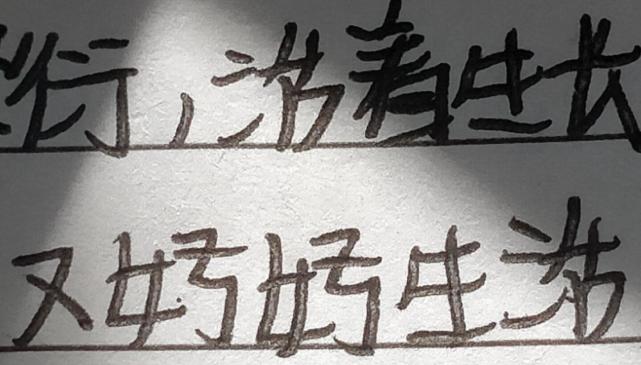 行，活着生长
又好好生活